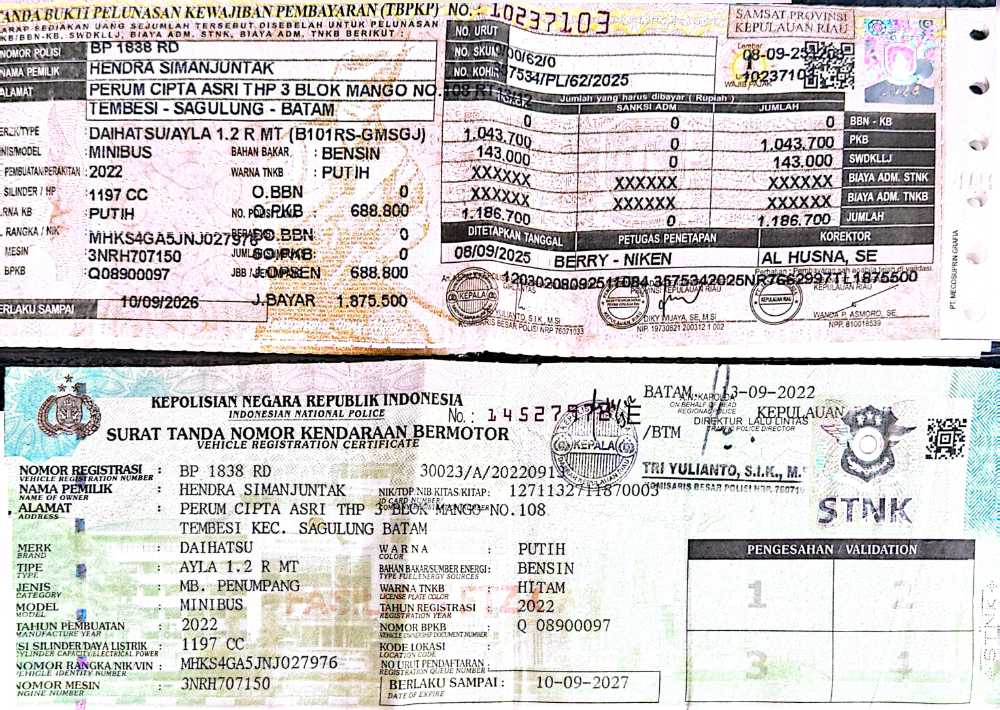 TANDA BUKTI PELUNASAN KEWAJIBAN PEMBAYARAN (TBPKP) NO.: 10237103
HARAP SEDIAKAN UANG SEJUMLAH TERSEBUT DISEBELAH UNTUK PELUNASAN
PKB/BBN-KB, SWDKLLJ, BIAYA ADM. STNK, BIAYA ADM. TNKB BERIKUT :
SAMSAT PROVINSI
KEPULAUAN RIAU
NO. URUT
NO. SKUM 00/62/0
NO. KOHIR 57534/PL/62/2025
Lembar
1
WAJIB PAJAK
08-09-25
102371
NOMOR POLISI BP 1838 RD
NAMA PEMILIK HENDRA SIMANJUNTAK
ALAMAT PERUM CIPTA ASRI THP 3 BLOK MANGO NO.108
TEMBESI - SAGULUNG - BATAM
MERK/TYPE DAIHATSU/AYLA 1.2 R MT (B101RS-GMSGJ)
JENIS/MODEL : MINIBUS BAHAN BAKAR : BENSIN
PEMBUATAN/PERAKITAN : 2022 WARNA TNKB : PUTIH
SILINDER / HP : 1197 CC O.BBN 0
WARNA KB : PUTIH O.PKB 688.800
RANGKA / NIK MHKS4GA5JNJ027976 B.BBN 0
MESIN 3NRH707150 SO.PKB: 0
BPKB : Q08900097 OPSEN 688.800
BERLAKU SAMPAI 10/09/2026 J.BAYAR 1.875.500
Jumlah yang harus dibayar ( Rupiah )
POKOK SANKSI ADM JUMLAH
0 0 0 BBN - KB
1.043.700 0 1.043.700 PKB
143.000 0 143.000 SWDKLLJ
XXXXXX XXXXXX XXXXXX BIAYA ADM. STNK
XXXXXX XXXXXX XXXXXX BIAYA ADM. TNKB
1.186.700 0 1.186.700 JUMLAH
DITETAPKAN TANGGAL PETUGAS PENETAPAN KOREKTOR
08/09/2025 BERRY - NIKEN AL HUSNA, SE
KEPALA
YULIANTO, S.I.K, M.SI
KOMISARIS BESAR POLISI NRP 76071033
DIKY WIJAYA, SE, M.SI
NIP. 19730621 200312 1 002
KEPULAUAN RIAU
WANDA P. ASMORO, SE
NPP. 810018539
PT. MECOSUPRIN GRAFIA
KEPOLISIAN NEGARA REPUBLIK INDONESIA
INDONESIAN NATIONAL POLICE
No.:
SURAT TANDA NOMOR KENDARAAN BERMOTOR
VEHICLE REGISTRATION CERTIFICATE
/BTM
BATAM, 13-09-2022
A.N. KAPOLDA KEPULAUAN
ON BEHALF OF HEAD
REGIONAL POLICE
DIREKTUR LALU LINTAS
TRAFFIC POLICE DIRECTOR
KEPALA
TRI YULIANTO, S.I.K., M.
KOMISARIS BESAR POLISI NRP. 76071
STNK
NOMOR REGISTRASI : BP 1838 RD 30023/A/2022091
VEHICLE REGISTRATION NUMBER
NAMA PEMILIK : HENDRA SIMANJUNTAK NIK/TDP/NIB/KITAS/KITAP : 1271132711870003
NAME OF OWNER
ALAMAT : PERUM CIPTA ASRI THP 3 BLOK MANGO NO.108
ADDRESS
TEMBESI KEC. SAGULUNG BATAM
MERK : DAIHATSU WARNA : PUTIH
BRAND COLOR
TIPE : AYLA 1.2 R MT BAHAN BAKAR/SUMBER ENERGI : BENSIN
TYPE TYPE FUEL/ENERGY SOURCES
JENIS : MB. PENUMPANG WARNA TNKB : HITAM
CATEGORY LICENSE PLATE COLOR
MODEL : MINIBUS TAHUN REGISTRASI : 2022
MODEL REGISTRATION YEAR
TAHUN PEMBUATAN : 2022 NOMOR BPKB : Q 08900097
MANUFACTURE YEAR VEHICLE OWNERSHIP DOCUMENT NUMBER
ISI SILINDER/DAYA LISTRIK : 1197 CC KODE LOKASI :
CYLINDER CAPACITY/ELECTRICAL POWER LOCATION CODE
NOMOR RANGKA/NIK/VIN : MHKS4GA5JNJ027976 NO URUT PENDAFTARAN :
VEHICLE IDENTITY NUMBER REGISTRATION QUEUE NUMBER
NOMOR MESIN : 3NRH707150 BERLAKU SAMPAI : 10-09-2027
ENGINE NUMBER DATE OF EXPIRE
PENGESAHAN / VALIDATION
1 2
3 4